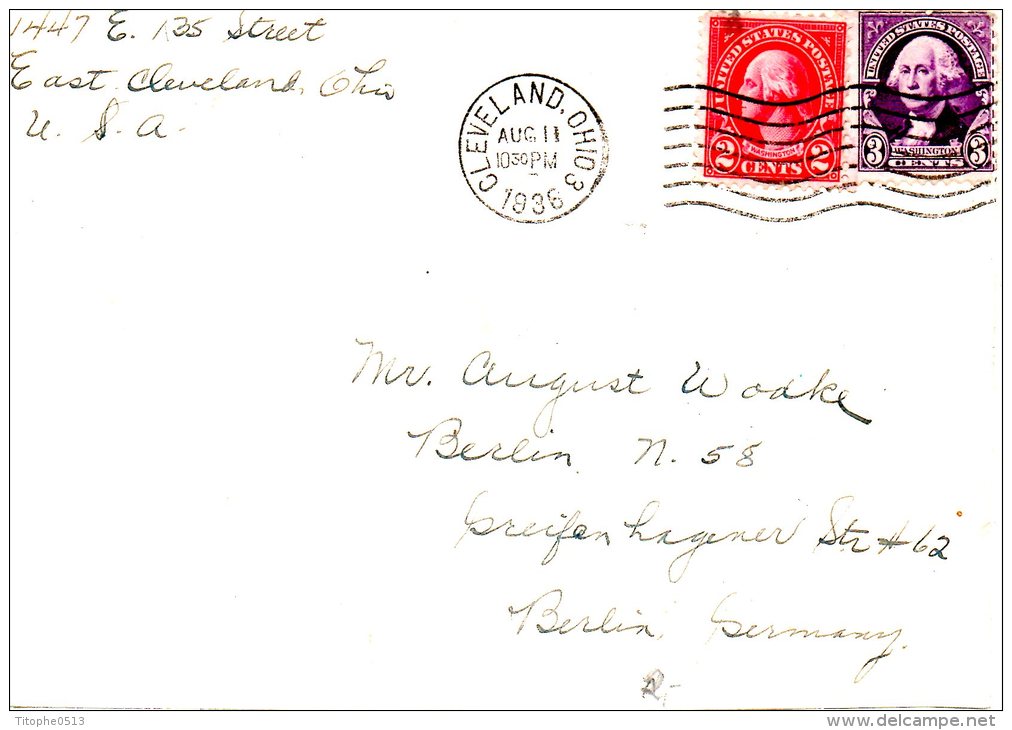 1447 E. 135 Street
East Cleveland, Ohio
U. S. A.
CLEVELAND, OHIO 3
AUG 11
10 30 PM
1936
UNITED STATES POSTAGE
WASHINGTON
2 CENTS 2
UNITED STATES POSTAGE
3 WASHINGTON 3
CENTS
Mr. August Wodke
Berlin N. 58
Greifenhagener Str # 62
Berlin, Germany.
Titophe0513
delcampe.net